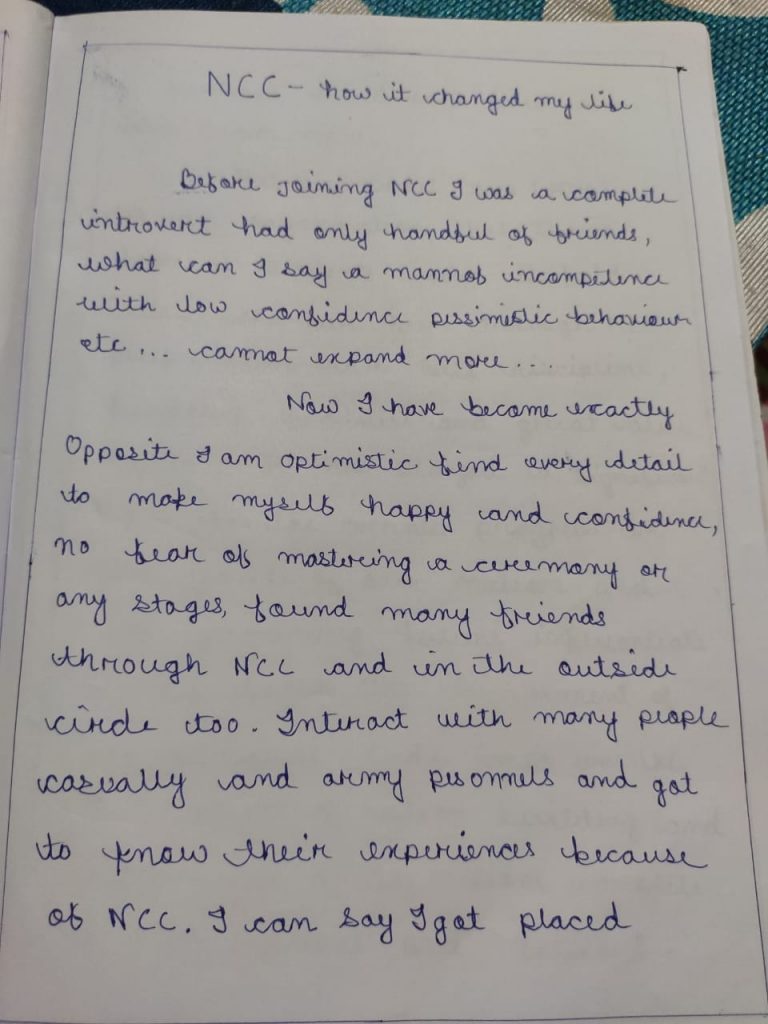 NCC - how it changed my life
Before joining NCC I was a complete
introvert had only handful of friends,
what can I say a mannof incompetence
with low confidence pessimistic behaviour
etc... cannot expand more...
Now I have become exactly
Opposite I am optimistic find every detail
to make myself happy and confidence,
no fear of mastering a ceremony or
any stages, found many friends
through NCC and in the outside
circle too. Interact with many people
casually and army personnels and got
to know their experiences because
of NCC. I can say I got placed